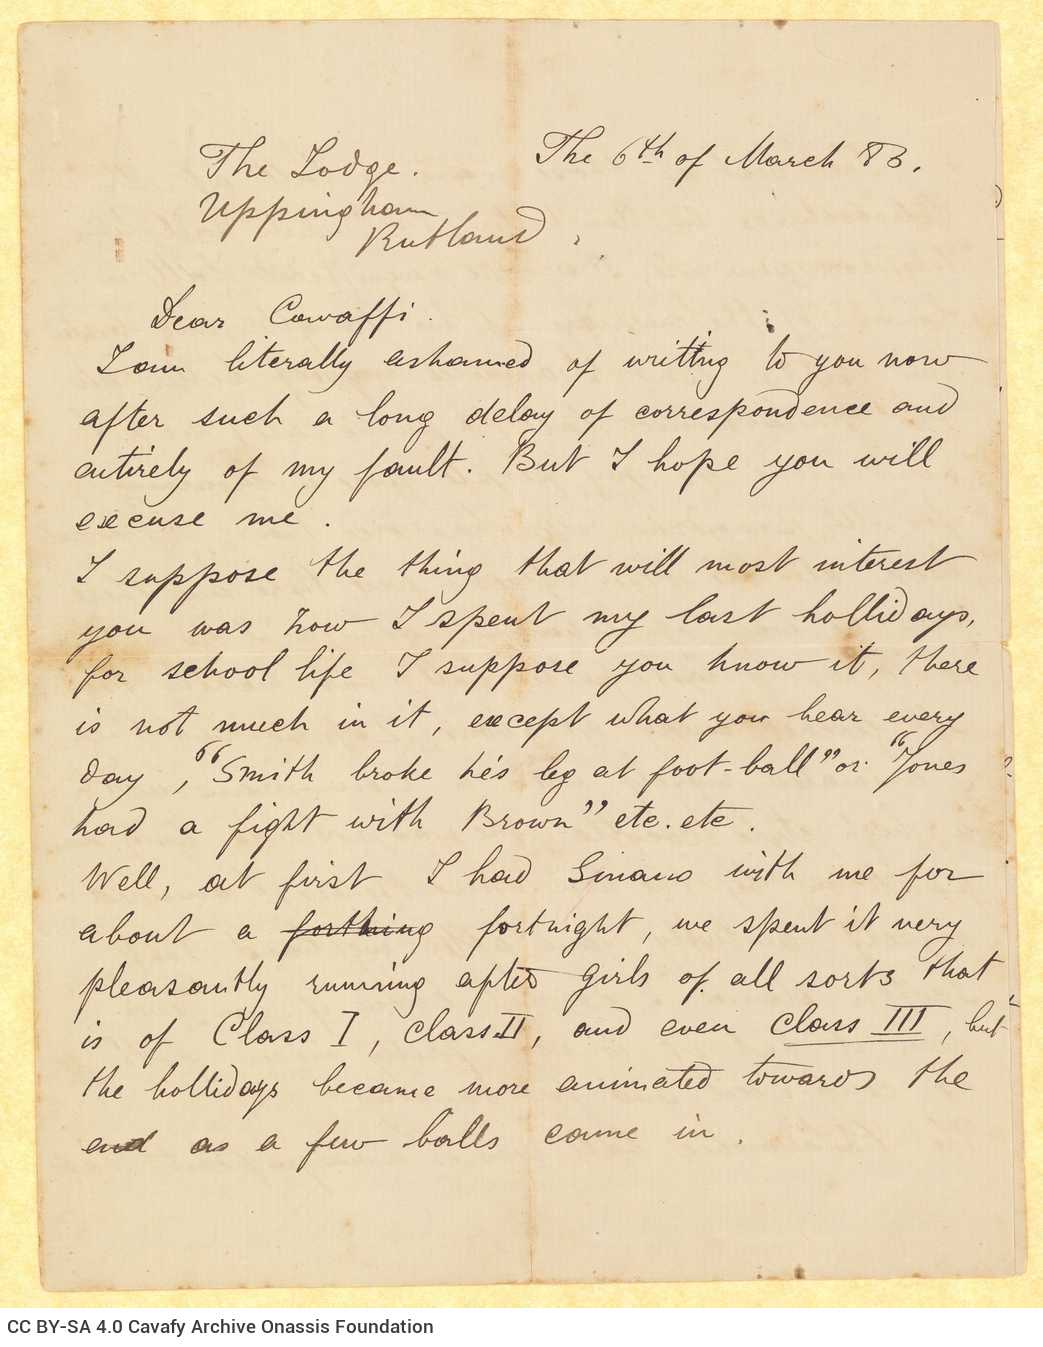 The 6th of March 83.
The Lodge.
Uppingham
Rutland,
Dear Cawaffi.
I am literally ashamed of writting to you now
after such a long delay of correspondence and
entirely of my fault. But I hope you will
excuse me.
I suppose the thing that will most interest
you was how I spent my last hollidays,
for school life I suppose you know it, there
is not much in it, except what you hear every
day, "Smith broke he's leg at foot-ball" or "Jones
had a fight with Brown" etc. etc.
Well, at first I had Sinano with me for
about a forthing fortnight, we spent it very
pleasantly running after girls of all sorts that
is of Class I, class II, and even class III, but
the hollidays became more animated towards the
end as a few balls came in.
CC BY-SA 4.0 Cavafy Archive Onassis Foundation